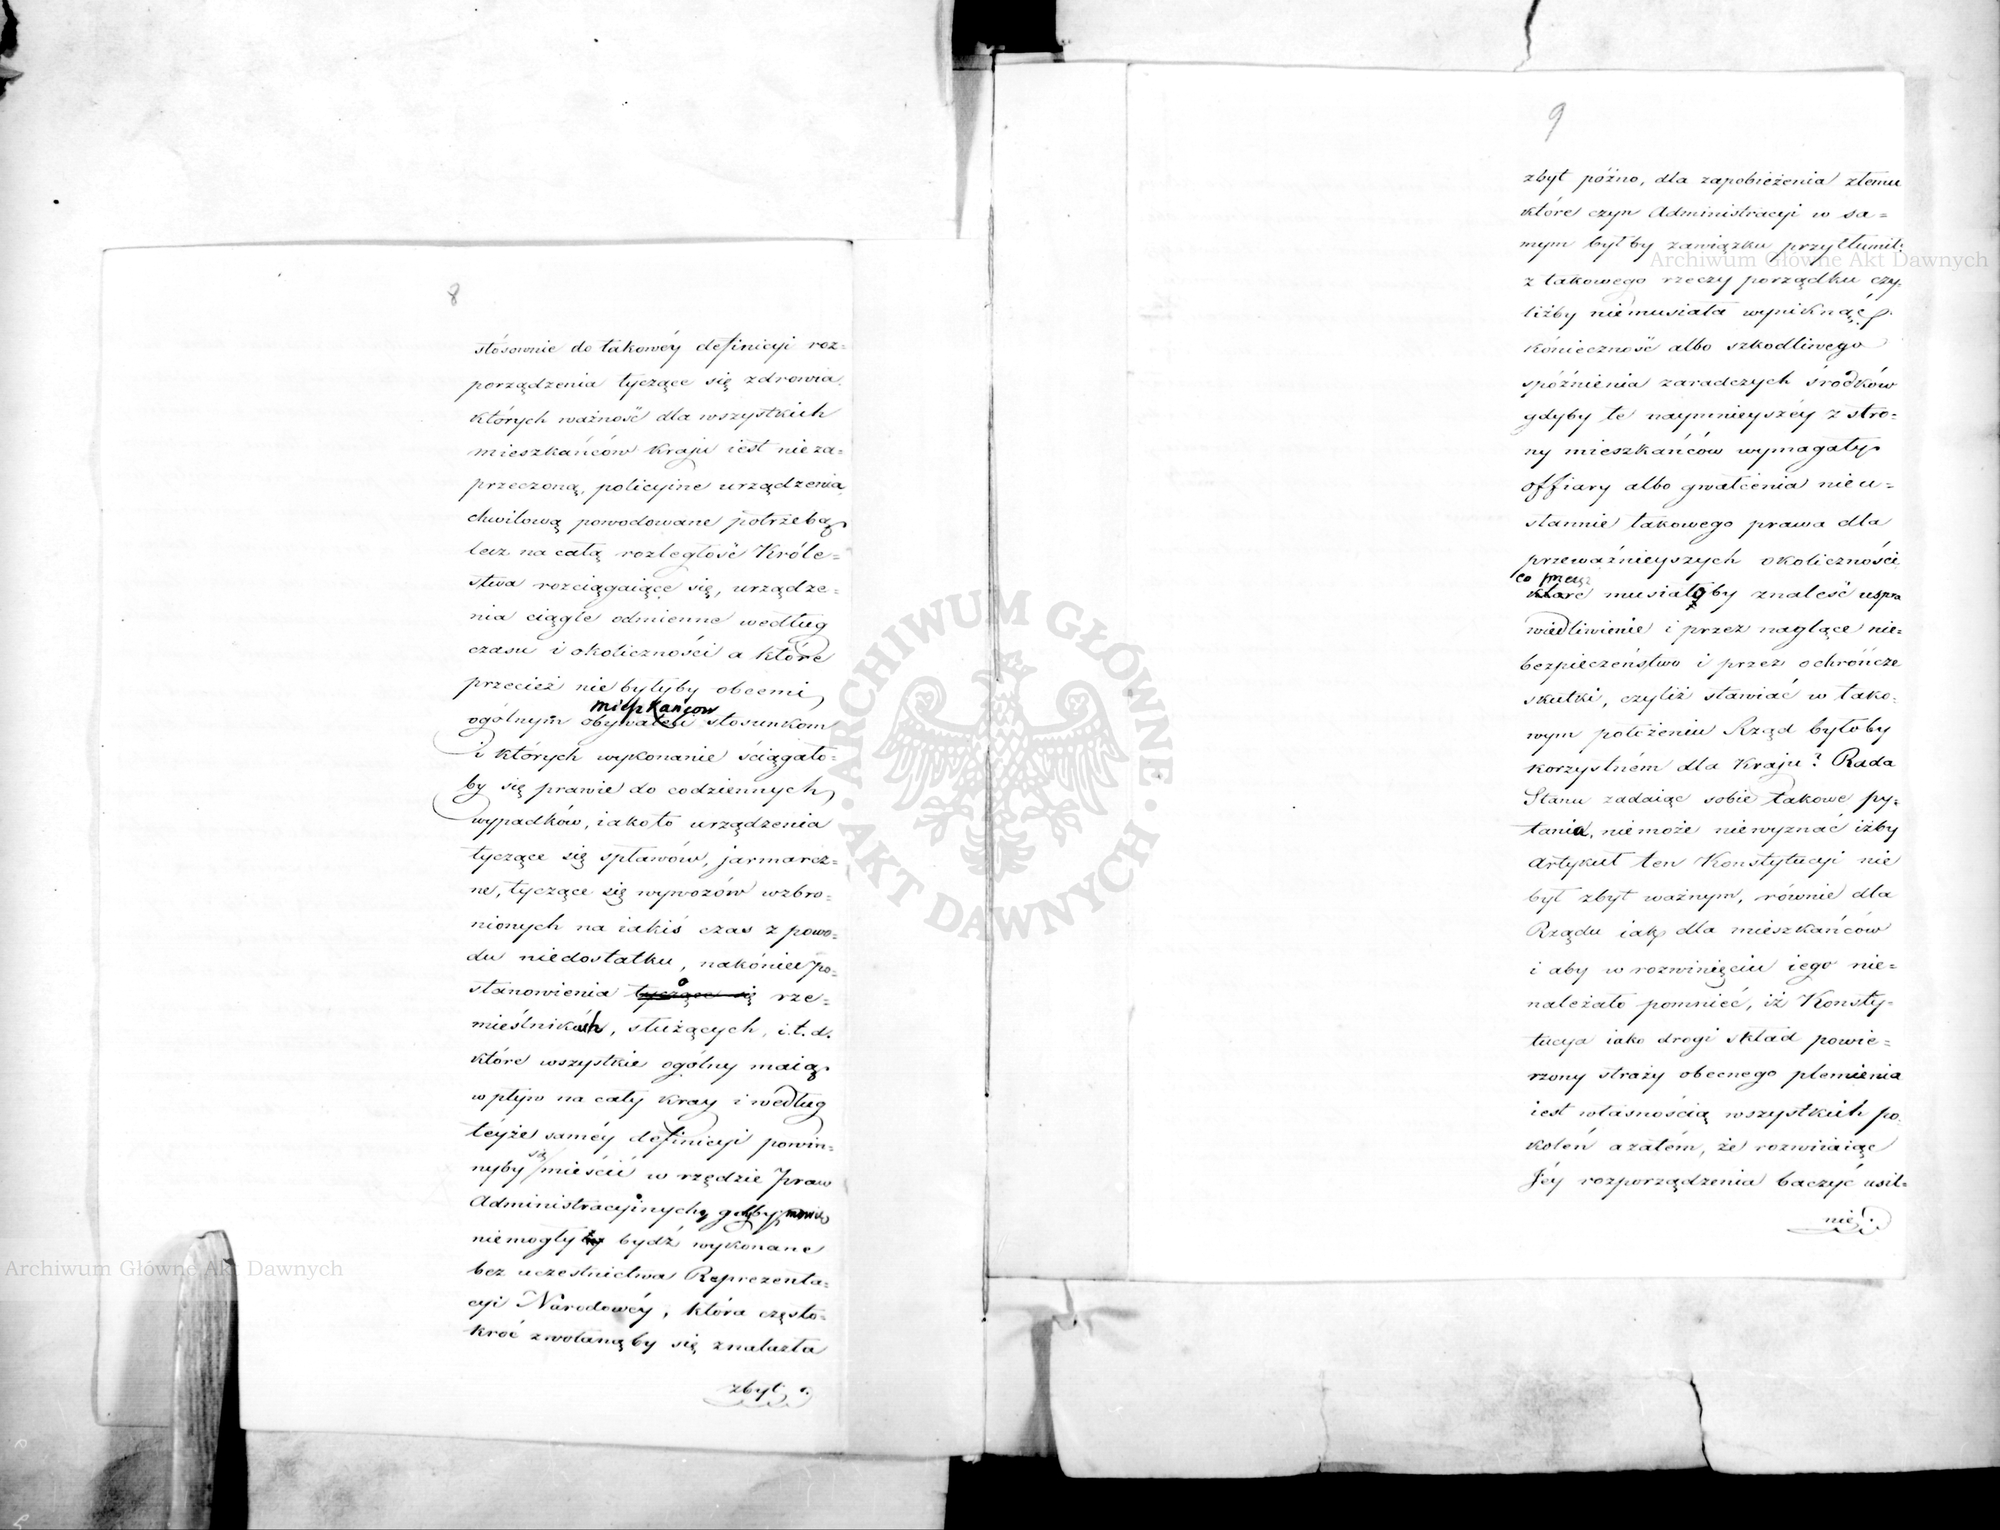 8
stósownie do takowéy definicyi roz=
porządzenia tyczące się zdrowia
których ważność dla wszystkich
mieszkańców kraju iest nieza=
przeczoną, policyine urządzenia
chwilową powodowane potrzebą
lecz na całą rozległość Króle=
stwa rozciągaiące się, urządze=
nia ciągle odmienne według
czasu i okoliczności a które
przecież nie byłyby obcemi
mieszkańcow
ogólnym obywateli stosunkom
i których wykonanie ściągało=
by się prawie do codziennych
wypadków, iakoto urządzenia
tyczące się spławów, jarmarcz=
ne, tyczące się wywozów wzbro=
nionych na iakiś czas z powo=
du niedostatku, nakóniec po=
stanowienia o tyczące się rze=
mieślnikach, służących, i.t.d.
które wszystkie ogólny maią
wpływ na cały kray i według
téyże saméy definicyi powin=
nyby się mieścić w rzędzie Praw
Administracyinych, gdyby
niemogły bydź wykonane
bez uczestnictwa Reprezenta=
cyi Narodowéy, która często=
kroć zwołanąby się znalazła
zbyt
9
zbyt późno, dla zapobieżenia złemu
które czyn Administracyi w sa=
mym byłby zawiązku przytłumił:
z takowego rzeczy porządku czy
liżby niemusiała wyniknąć
konieczność albo szkodliwego
spóźnienia zaradczych środków
gdyby te naymnieyszéy z stro=
ny mieszkańców wymagały
offiary albo gwałcenia nieu=
stannie takowego prawa dla
przeważnieyszych okoliczności
co przecież
które musiałoby znaleść uspra
wiedliwienie i przez naglące nie=
bezpieczeństwo i przez ochrończe
skutki, czyliż stawiać w tako=
wym położeniu Rząd byłoby
korzystném dla Kraju? Rada
Stanu zadaiąc sobie takowe py=
tania, niemoże niewyznać iżby
Artykuł ten Konstytucyi nie
był zbyt ważnym, równie dla
Rządu iak dla mieszkańców
i aby w rozwinięciu iego nie=
należało pomnieć, iż Konsty=
tucya iako drogi skład powie=
rzony straży obecnego plemienia
iest własnością wszystkich po
koleń a zatém, że rozwiiaiąc
Jéy rozporządzenia baczyć usil=
nie
Archiwum Główne Akt Dawnych
Archiwum Główne Akt Dawnych
ARCHIWUM GŁÓWNE · AKT DAWNYCH ·